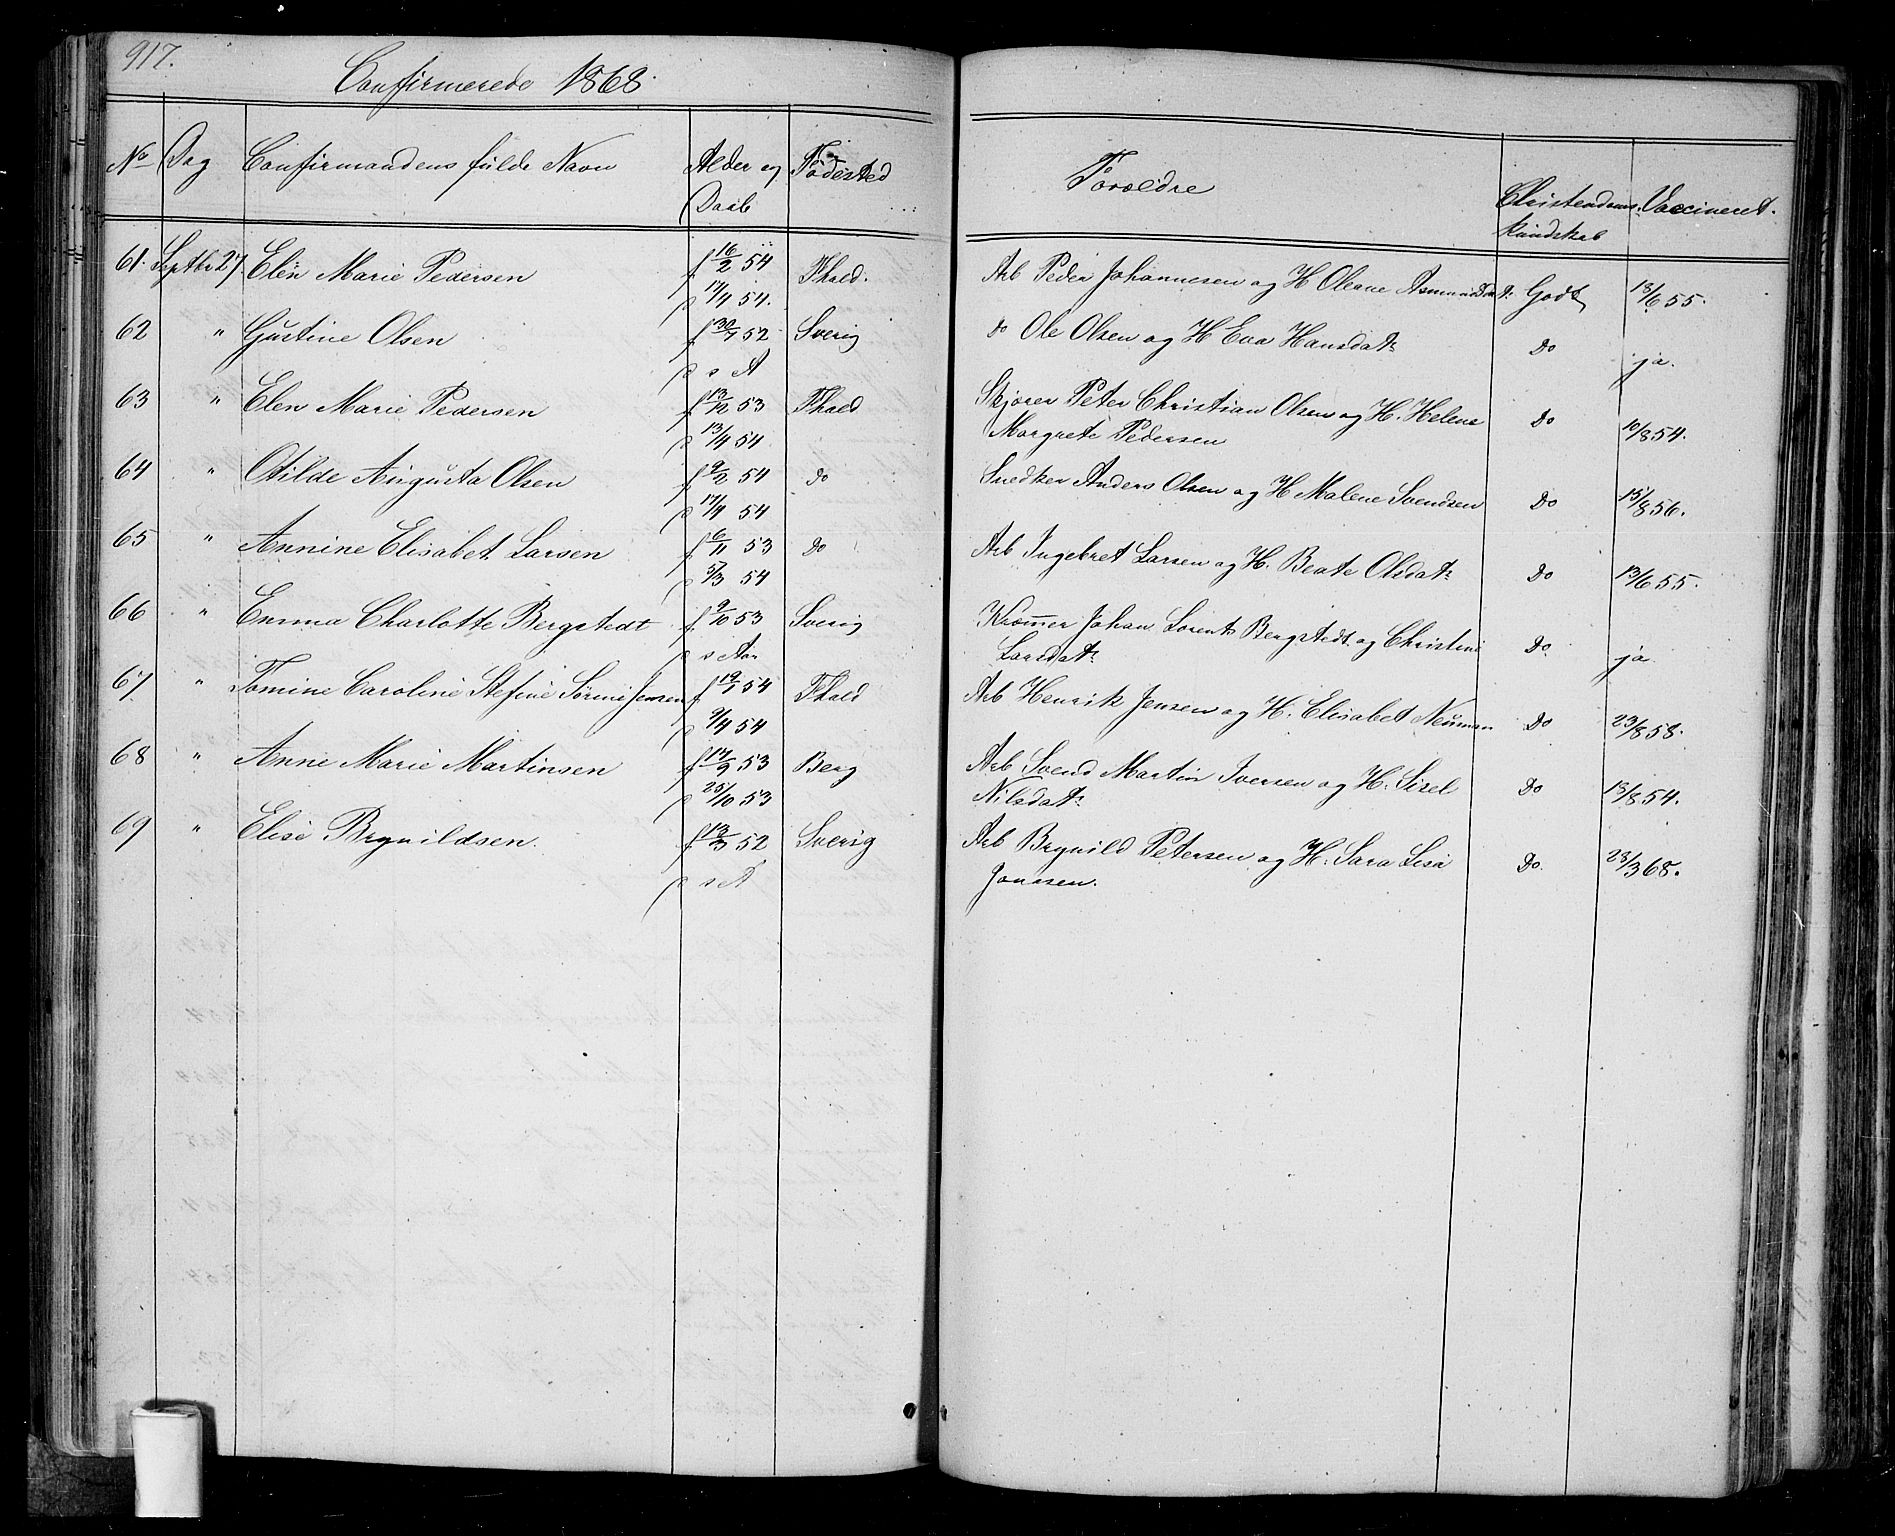 917.
Confirmerede 1868.
No Dag Confirmandens fulde Navn Alder og Daab Födested Forældre Christendoms kundskab Vaccineret.
61. Septbr 27. Elen Marie Pedersen f 16/2 54 Fhald. Arb Peder Johannesen og H Oleane Godt 13/6 55.
d 17/4 54.
62 " Gustine Olsen f 30/7 52 Sverig do Ole Olsen og H Eva Hansdatr Do ja.
d s A
63 " Elen Marie Pedersen f 13/12 53 Fhald Skjörer Peter Christian Olsen og H. Helene Do 10/8 54.
d 13/4 54 Margrete Pedersen
64 " Otilde Augusta Olsen f 9/2 54 Do Snedker Anders Olsen og H Malene Svendsen Do 15/8 56.
d 17/4 54
65 " Annine Elisabet Larsen f 6/11 53 Do Arb Ingebret Larsen og H. Beate Olsdatr Do 13/6 55.
d 5/3 54
66 " Emma Charlotte Bergstedt f 9/10 53 Sverig Kræmer Johan Lorents Bergstedt og Christine Do ja
d s Aar Larsdatr
67. " Tomine Caroline Stefine Sörine Jensen f 19/1 54 Fhald Arb Henrik Jensen og H. Elisabet Neuman Do 23/8 58.
d 9/4 54
68 " Anne Marie Martinsen f 14/9 53 Berg Arb Svend Martin Iversen og H. Sisel Do 13/8 54.
d 25/10 53 Nilsdatr
69 " Elise Brynildsen. f 13/3 52 Sverig Arb Brynild Petersen og H. Sara Lisa Do. 23/3 68.
d s A Jonasen.